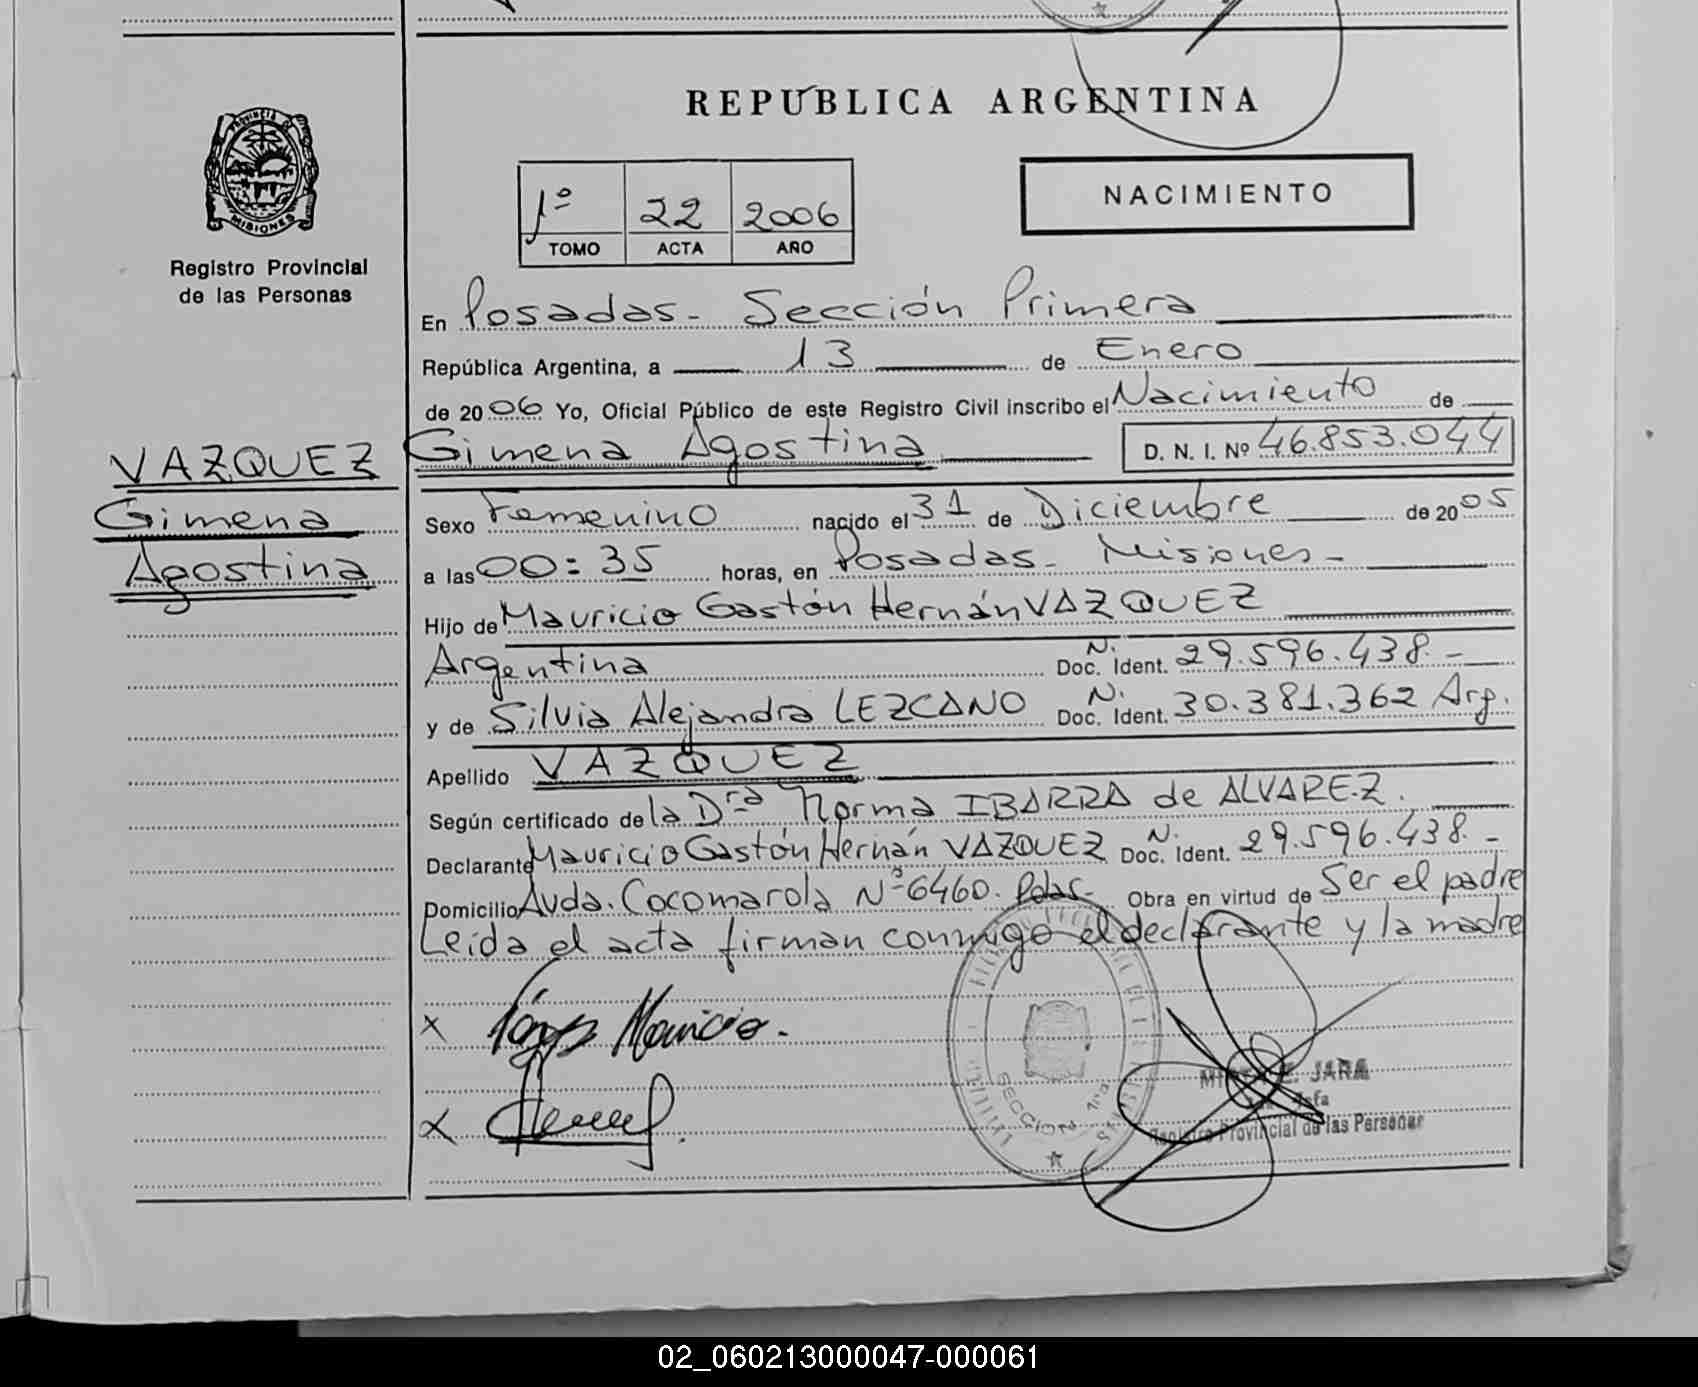 REPUBLICA ARGENTINA
PROVINCIA DE
MISIONES
Registro Provincial
de las Personas
1º 22 2006
TOMO ACTA AÑO
NACIMIENTO
En Posadas - Sección Primera
República Argentina, a 13 de Enero
de 2006 Yo, Oficial Público de este Registro Civil inscribo el Nacimiento de
VAZQUEZ
Gimena
Agostina
Gimena Agostina D. N. I. Nº 46.853.044
Sexo Femenino nacido el 31 de Diciembre de 2005
a las 00:35 horas, en Posadas - Misiones -
Hijo de Mauricio Gastón Hernán VAZQUEZ
Argentina N. Doc. Ident. 29.596.438. -
y de Silvia Alejandra LEZCANO N. Doc. Ident. 30.381.362 Arg.
Apellido VAZQUEZ
Según certificado de la Dra Norma IBARRA de ALVAREZ.
Declarante Mauricio Gastón Hernán VAZQUEZ N. Doc. Ident. 29.596.438. -
Domicilio Avda. Cocomarola Nº 6460. Pdas- Obra en virtud de Ser el padre
Leida el acta firman conmigo el declarante y la madre
x Mauricio.
x
SECCION 1ra
JARA
Jefa
Registro Provincial de las Personas
02_060213000047-000061